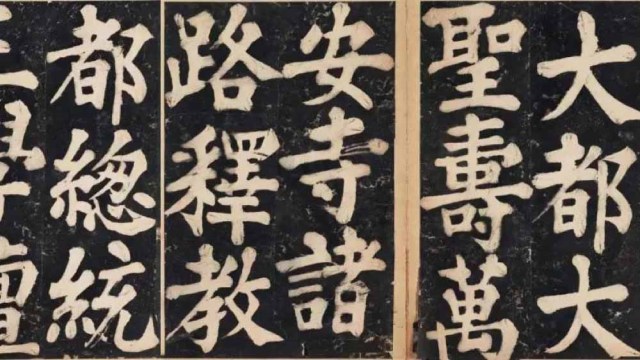 大都大
聖壽萬
安寺諸
路釋教
都總統